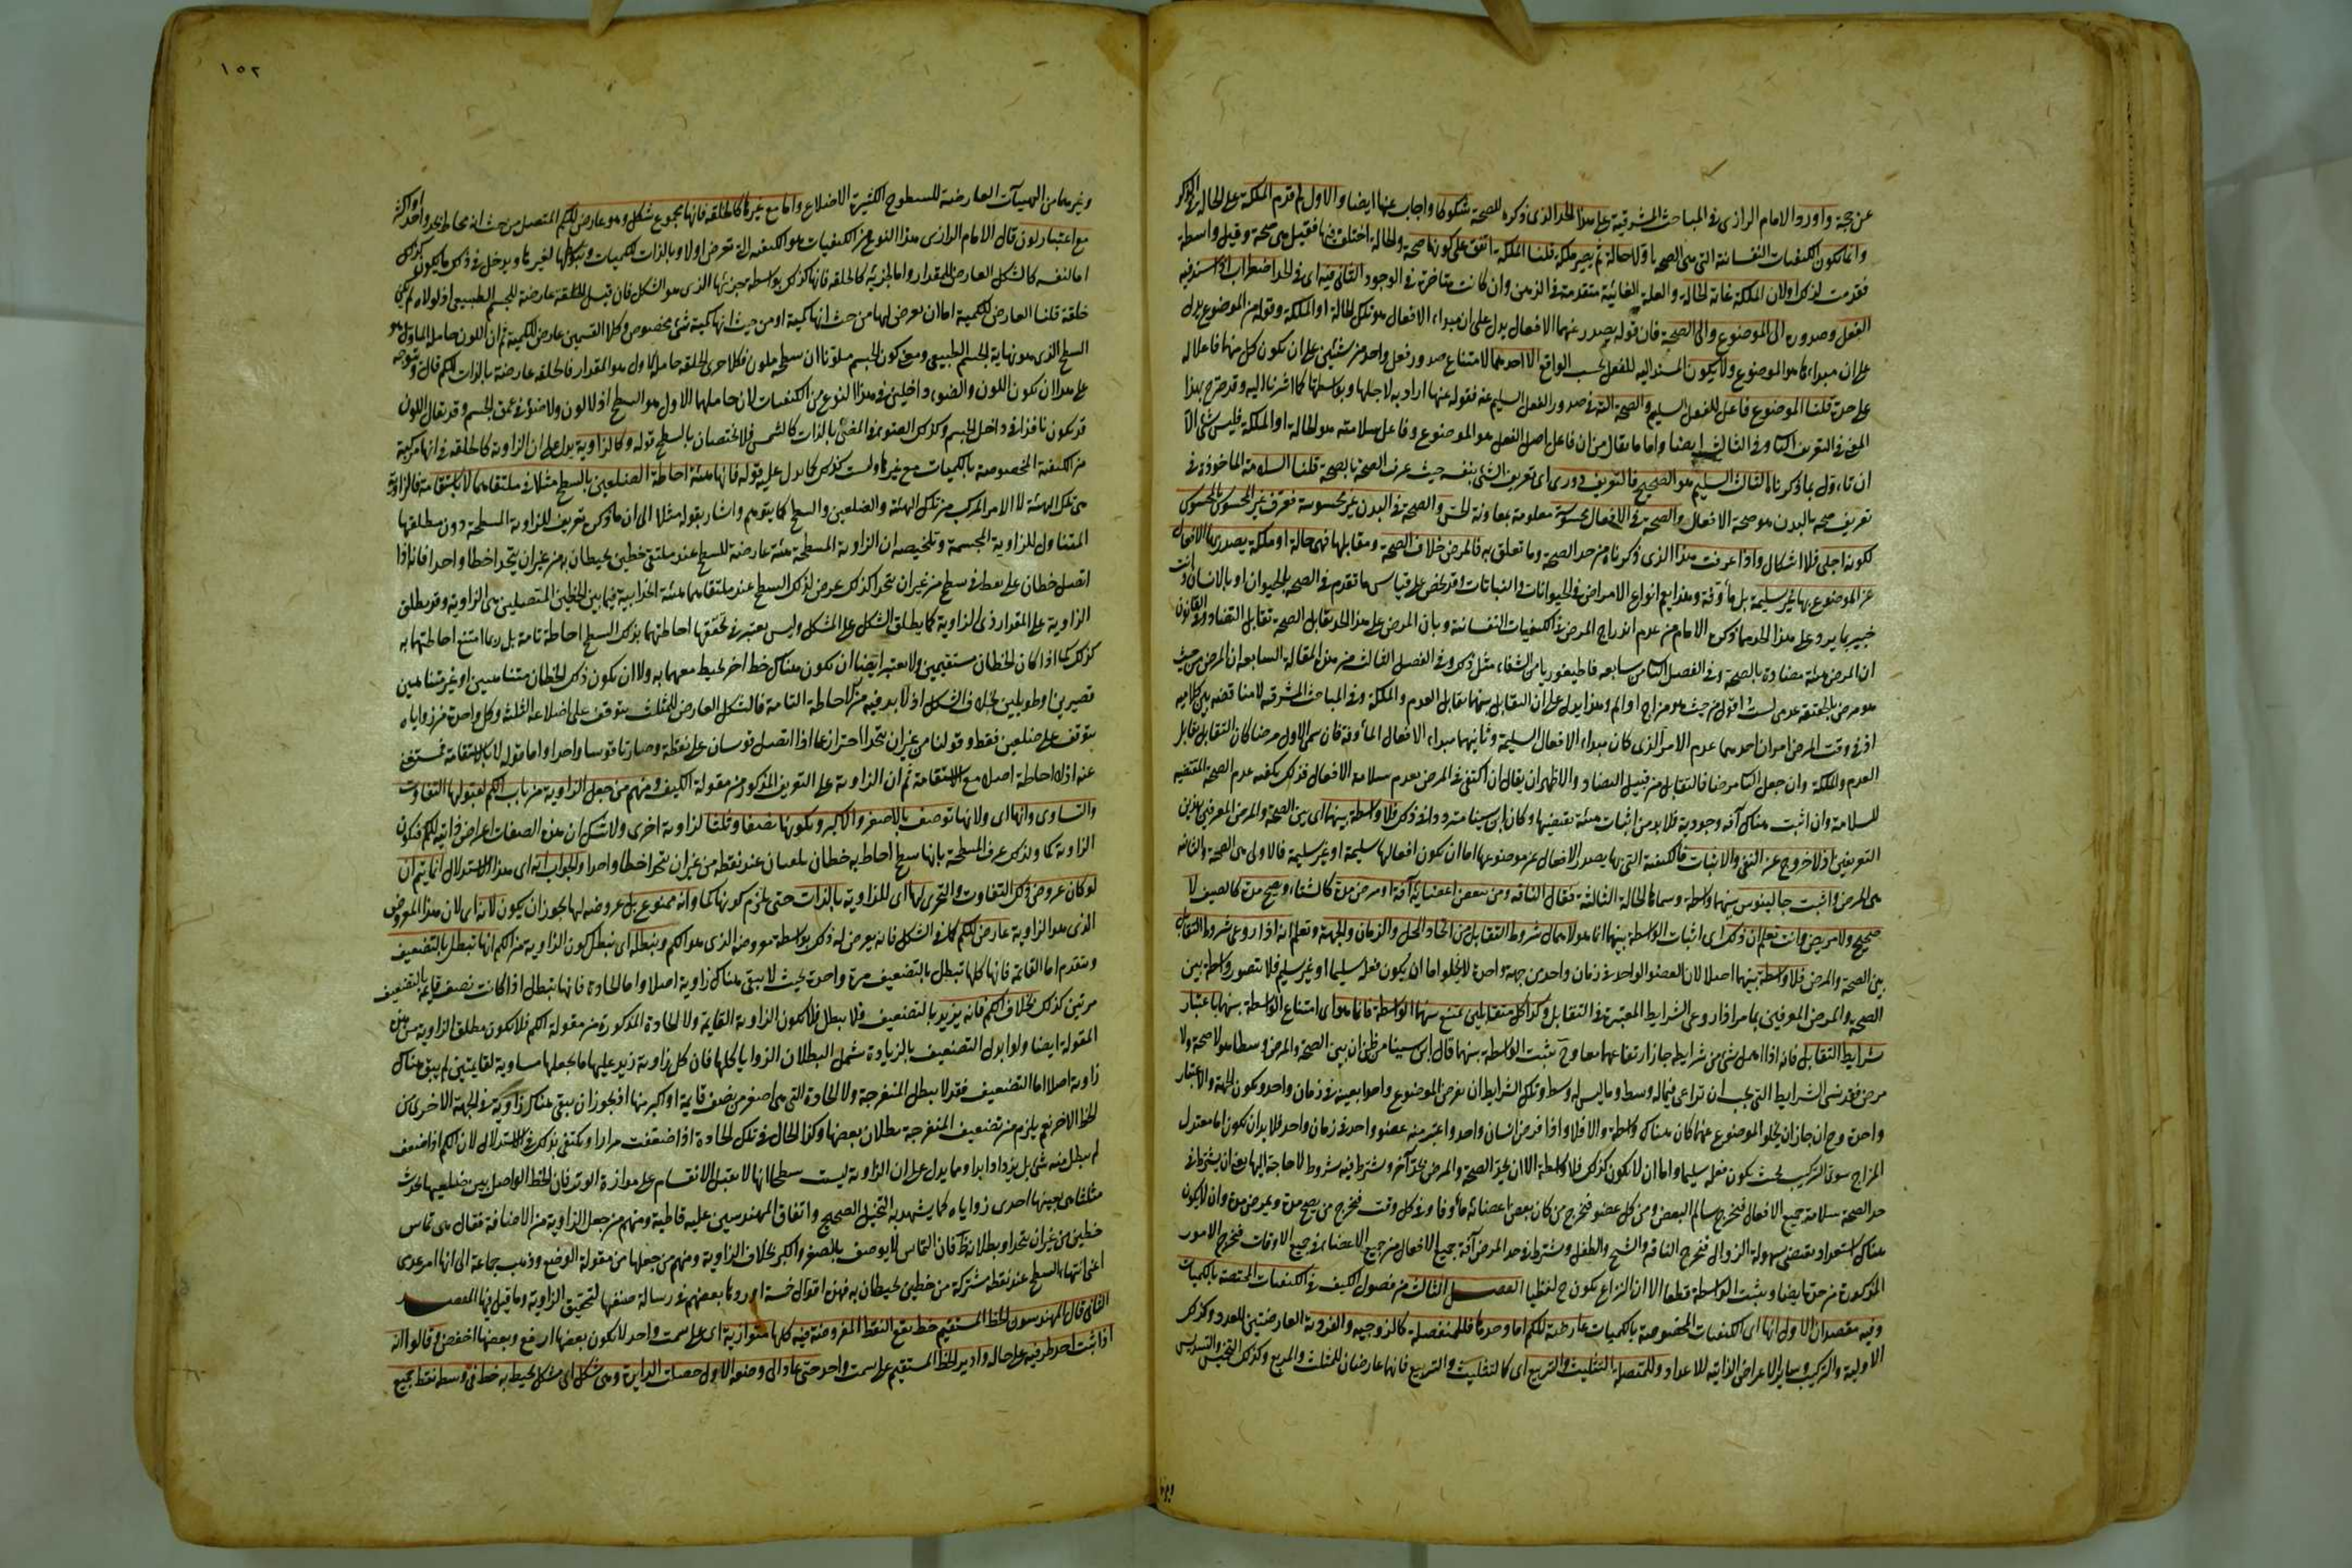 عن حجة واورد الامام الرازى فى المباحث المشرقية على هذا الحد الذى ذكره للصحة شكوكا واجاب عنها ايضا والاول لم قدم الملكة على الحالة فى الذكر
وانما تكون الكيفيات النفسانية التى هى الصحة اولا حالة ثم يصير ملكة قلنا الملكة اتفق على كونها صحة والحالة اختلف فيها فقيل هى صحة وقيل واسطة
فقدمت لذلك او لان الملكة غاية الحالة والعلة الغائية متقدمة فى الذهن وان كانت متاخرة فى الوجود الثانى فيه اى فى الحد اضطراب اذ اسند فيه
الفعل وصدوره الى الموضوع والى الصحة فان قوله يصدر عنها الافعال يدل على ان مبداء الافعال هو تلك الحالة او الملكة وقوله من الموضوع يدل
على ان مبداءها هو الموضوع ولا يكون المسند اليه للفعل بحسب الواقع الا احدهما لامتناع صدور فعل واحد من شيئين على ان يكون كل منهما فاعلا له
على حدة قلنا الموضوع فاعل للفعل السليم والصحة آلة فى صدور الفعل السليم عنه فقوله عنها اراد به لاجلها وبواسطتها كما اشرنا اليه وقد صرح بهذا
المعنى فى التعريف الثانى وفى الثالث ايضا واما ما يقال من ان فاعل اصل الفعل هو الموضوع وفاعل سلامته هو الحالة او الملكة فليس بشئ الا
ان تاول بما ذكرناه الثالث السليم هو الصحيح فالتعريف دورى اى تعريف الشئ بنفسه حيث عرف الصحة بالصحة قلنا السلامة الماخوذة فى
تعريف صحة البدن هو صحة الافعال والصحة فى الافعال محسوسة معلومة بمعاونة الحس والصحة فى البدن غير محسوسة فعرف غير المحسوس بالمحسوس
لكونه اجلى فلا اشكال واذا عرفت هذا الذى ذكرناه من حد الصحة وما تعلق به فالمرض خلاف الصحة ومقابلها فهى حالة او ملكة يصدر بها الافعال
عن الموضوع بها غير سليمة بل مأوفة وهذا يعم انواع الامراض فى الحيوانات والنباتات وقد يخص على قياس ما تقدم فى الصحة بالحيوان او بالانسان وانت
خبير بما يرد على هذا الحد مما ذكره الامام من عدم اندراج المرض فى الكيفيات النفسانية وبان المرض على هذا الحد يقابل الصحة تقابل التضاد وفى القانون
ان المرض هيئة مضادة بالصحة وفى الفصل الثانى من سابعه قاطيغورياس الشفاء مثل ذلك وفى الفصل الثالث من هذه المقالة السابعة ان المرض من حيث
هو مرض بالحقيقة عدمى لست اقول من حيث هو مزاج او الم وهذا يدل على ان التقابل بينهما تقابل العدم والملكة وفى المباحث المشرقية لا مناقضة بين كلاميه
اذ فى وقت المرض امران احدهما عدم الامر الذى كان مبداء الافعال السليمة وثانيهما مبداء الافعال المأوفة فان سمى الاول مرضا كان التقابل تقابل
العدم والملكة وان جعل الثانى مرضا فالتقابل من قبيل التضاد والاظهر ان يقال ان اكتفى فى المرض بعدم سلامة الافعال فذلك يكفيه عدم الصحة المقتضية
للسلامة وان اثبت هناك آفة وجودية فلا بد من اثبات هيئة تقتضيها وكان ابن سينا متردد فى ذلك فلا واسطة بينهما اى بين الصحة والمرض المعرفين بهذين
التعريفين اذ لا خروج عن النفى والاثبات فالكيفية التى بها يصدر الافعال عن موضوعها اما ان يكون افعالها سليمة او غير سليمة فالاولى هى الصحة والثانية
هى المرض واثبت جالينوس بينهما واسطة وسماها الحالة الثالثة فقال الناقه ومن ببعض اعضائه آفة او مرض مدة كالشتاء ويصح مدة كالصيف لا
صحيح ولا مريض وانت تعلم ان ذلك اى اثبات الواسطة بينهما انما هو لاهمال شروط التقابل من اتحاد المحل والزمان والجهة وتعلم انه اذا روعى شروط التقابل
بين الصحة والمرض فلا واسطة بينهما اصلا لان العضو الواحد فى زمان واحد من جهة واحدة لا يخلو اما ان يكون فعله سليما او غير سليم فلا تتصور واسطة بين
الصحة والمرض المعرفين بما مر اذا روعى الشرايط المعتبرة فى التقابل وكذا كل متقابلين يمتنع بينهما الواسطة فانما هو اى امتناع الواسطة بينهما باعتبار
شرايط التقابل فانه اذا اهمل شئ من شرايطه جاز ارتفاعهما معا وح تثبت الواسطة بينهما قال ابن سينا من ظن ان بين الصحة والمرض وسطا هو لا صحة ولا
مرض فقد نسى الشرايط التى يجب ان تراعى فيما له وسط وما ليس له وسط وتلك الشرايط ان يفرض الموضوع واحدا بعينه فى زمان واحد ويكون الجهة والاعتبار
واحدة وح ان جاز ان يخلو الموضوع عنهما كان هناك واسطة والا فلا واذا فرض انسان واحد واعتبر منه عضو واحد فى زمان واحد فلا بد ان يكون اما معتدل
المزاج سوى التركيب بحيث يكون فعله سليما واما ان لا يكون كذلك فلا واسطة الا ان يحد الصحة والمرض بحد آخر ويشترط فيه شروط لا حاجة اليها يعنى ان يشترط فى
حد الصحة سلامة جميع الافعال فيخرج سالم البعض ومن كل عضو فيخرج من كان بعض اعضائه مأوفا وفى كل وقت فيخرج من يصح مدة ويمرض مدة وان لا يكون
هناك استعداد يقتضى سهولة الزوال فيخرج الناقه والشيخ والطفل ويشترط فى حد المرض آفة جميع الافعال من جميع الاعضاء فى جميع الاوقات فيخرج الامور
المذكورة من حده ايضا ويثبت الواسطة قطعا الا ان النزاع يكون ح لفظيا الفصل الثالث من فصول الكيف فى الكيفيات المختصة بالكميات
وفيه مقصدان الاول انها اى الكيفيات المخصوصة بالكميات عارضة للكم اما وحدها فللمنفصلة كالزوجية والفردية العارضتين للعدد وكذلك
الاولية والتركيب وساير الاعراض الذاتية للاعداد وللمتصلة التثليث والتربيع اى كالتثليث والتربيع فانهما عارضان للمثلث والمربع وكذلك التخميس والتسديس
١٥٢
وغيرهما من الهيئات العارضة للسطوح الكثيرة الاضلاع واما مع غيرها كالخلقة فانها مجموع شكل وهو عارض للكم المتصل من حيث انه محاط بحد واحد او اكثر
مع اعتبار لون قال الامام الرازى هذا النوع من الكيفيات هو الكيفية التى تعرض اولا وبالذات للكميات وبتوسطها لغيرها ويدخل فى ذلك ما يكون كذلك
اما لنفسه كالشكل العارض للمقدار واما لجزئه كالخلقة فانها كذلك بواسطة جزئها الذى هو الشكل فان قيل الخلقة عارضة للجسم الطبيعى اذ لولاه لم يكن
خلقة قلنا العارض للكمية اما ان يعرض لها من حيث انها كمية او من حيث انها كمية شئ مخصوص وكلا القسمين عارض للكمية ثم ان اللون حامله الاول هو
السطح الذى هو نهاية الجسم الطبيعى ومعنى كون الجسم ملونا ان سطحه ملون فكلا جزئى الخلقة حامله الاول هو المقدار فالخلقة عارضة بالذات للكم قال ويتوجه
على هذا ان يكون اللون والضوء داخلين فى هذا النوع من الكيفيات لان حاملهما الاول هو السطح اذ لا لون ولا ضوء فى عمق الجسم وقد يقال اللون
قد يكون نافذا فى داخل الجسم وكذلك الضوء فى المضئ بالذات كالشمس فلا يختصان بالسطح قوله وكالزاوية يدل على ان الزاوية كالخلقة فى انها مركبة
من الكيفية المخصوصة بالكميات مع غيرها وليست كذلك كما يدل عليه قوله فانها هيئة احاطة الضلعين بالسطح مثلا فى ملتقاهما لا باستقامة فالزاوية
هى تلك الهيئة لا الامر المركب من تلك الهيئة والضلعين والسطح كما يتوهم واشار بقوله مثلا الى ان ما ذكره تعريف للزاوية المسطحة دون مطلقها
المتناول للزاوية المجسمة وتلخيصه ان الزاوية المسطحة هيئة عارضة للسطح عند ملتقى خطين يحيطان به من غير ان يتحدا خطا واحدا فانه اذا
اتصل خطان على نقطة فى سطح من غير ان يتحدا كذلك عرض لذلك السطح عند ملتقاهما هيئة انحدابية فيما بين الخطين المتصلين هى الزاوية وقد يطلق
الزاوية على المقدار ذى الزاوية كما يطلق الشكل على المشكل وليس يعتبر فى تحققها احاطتهما بذلك السطح احاطة تامة بل ربما امتنع احاطتهما به
كذلك كما اذا كان الخطان مستقيمين ولا يعتبر ايضا ان يكون هناك خط آخر يحيط معهما به ولا ان يكون ذلك الخطان متناهيين او غير متناهيين
قصيرين او طويلين بخلاف الشكل اذ لا بد فيه من الاحاطة التامة فالشكل العارض للمثلث يتوقف على اضلاعه الثلثة وكل واحدة من زواياه
يتوقف على ضلعين فقط وقولنا من غير ان يتحدا احتراز عما اذا اتصل قوسان على نقطة وصارتا قوسا واحدا واما قوله لا بالاستقامة فمستغنى
عنه اذ لا احاطة اصلا مع الاستقامة ثم ان الزاوية على التعريف المذكور من مقولة الكيف ومنهم من جعل الزاوية من باب الكم لقبولها التفاوت
والتساوى وانها اى ولانها توصف بالاصغر والاكبر وبكونها نصفا وثلثا لزاوية اخرى ولا شك ان هذه الصفات اعراض ذاتية للكم فيكون
الزاوية كما ولذلك عرف المسطحة بانها سطح احاط به خطان يلتقيان عند نقطة من غير ان يتحدا خطا واحدا والجواب انه اى هذا الاستدلال انما يتم ان
لو كان عروض ذلك التفاوت والتجزى لها اى للزاوية بالذات حتى يلزم كونها كما وانه ممنوع بل عروضه لها يجوز ان يكون لانه اى لان هذا المعروض
الذى هو الزاوية عارض للكم كما فى الشكل فانه يعرض له ذلك بواسطة معروضه الذى هو الكم ويبطله اى يبطل كون الزاوية من الكم انها تبطل بالتضعيف
وستقدم اما القائمة فانها كلها تبطل بالتضعيف مرة واحدة بحيث لا يبقى هناك زاوية اصلا واما الحادة فانها تبطل اذا كانت نصف قايمة بالتضعيف
مرتين كذلك بخلاف الكم فانه يزيد بالتضعيف فلا يبطل فلا يكون الزاوية القايمة ولا الحادة المذكورة من مقولة الكم فلا يكون مطلق الزاوية من هذه
المقولة ايضا ولو ابدل التضعيف بالزيادة شمل البطلان الزوايا كلها فان كل زاوية زيد عليها ما يجعلها مساوية لقايمتين لم يبق هناك
زاوية اصلا اما التضعيف فقد لا يبطل المنفرجة ولا الحادة التى هى اصغر من نصف قايمة او اكبر منها اذ يجوز ان يبقى هناك زاوية فى الجهة الاخرى من
الخط الآخر نعم يلزم من تضعيف المنفرجة بطلان بعضها وكذا الحال فى تلك الحادة اذا ضعفت مرارا ويكتفى بذلك فى الاستدلال لان الكم اذا ضعف
لم يبطل منه شئ بل يزداد ابدا ومما يدل على ان الزاوية ليست سطحا انها لا تقبل الانقسام على موازاة الوتر فان الخط الواصل بين ضلعيها يحدث
مثلثا هى بعينها احدى زواياه كما يشهد به التخيل الصحيح واتفاق المهندسين عليه قاطبة ومنهم من جعل الزاوية من الاضافة فقال هى تماس
خطين من غير ان يتحدا وبطلانه ظ فان التماس لا يوصف بالصغر والكبر بخلاف الزاوية ومنهم من جعلها من مقولة الوضع وذهب جماعة الى انها امر عدمى
اعنى انتهاء السطح عند نقطة مشتركة من خطين يحيطان به فهذه اقوال خمسة اوردها بعضهم فى رسالة صنفها لتحقيق الزاوية وما قيل فيها المقصد
الثانى قال المهندسون الخط المستقيم خط يقع النقط المفروضة فيه كلها متوازية اى على سمت واحد لا يكون بعضها ارفع وبعضها اخفض وقالوا انه
اذا ثبت احد طرفيه على حاله وادير الخط المستقيم على سمت واحد حتى عاد الى وضعه الاول حصلت الدايرة وهى شكل اى مشكل يحيط به خط فى وسطه نقطة جميع